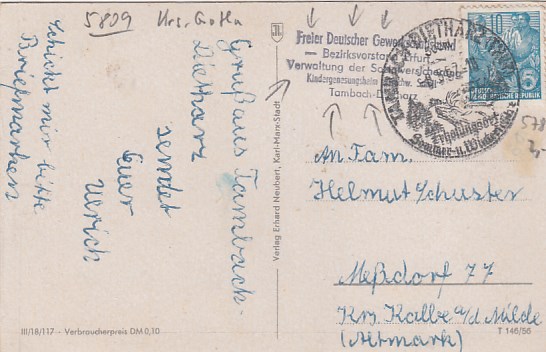 5809 Krs. Gotha
Schickt mir bitte
Briefmarken
Gruß aus Tambach-
Dietharz
sendet
Euer
Ulrich
Verlag Erhard Neubert, Karl-Marx-Stadt
III/18/117 - Verbraucherpreis DM 0,10
Freier Deutscher Gewerkschaftsbund
— Bezirksvorstand Erfurt —
Verwaltung der Sozialversicherung
Kindergenesungsheim
Tambach-Dietharz
TAMBACH-DIETHARZ
Erholungsort
Sommer- u. Wintersport
10
5
DEUTSCHE
DEMOKRATISCHE REPUBLIK
578
2,-
An Fam.
Helmut Schuster
Meßdorf 77
Krs. Kalbe a/d Milde
(Altmark)
T 146/56